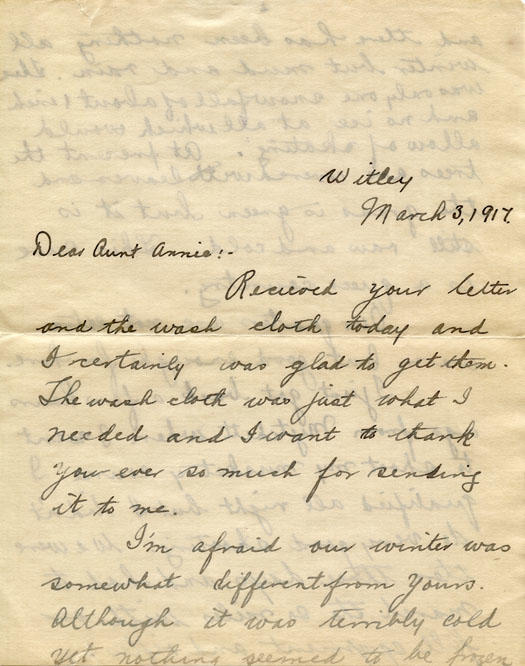 Witley
March 3, 1917.
Dear Aunt Annie:-
Recieved your letter
and the wash cloth today and
I certainly was glad to get them.
The wash cloth was just what I
needed and I want to thank
you ever so much for sending
it to me.
I'm afraid our winter was
somewhat different from yours.
Although it was terribly cold
yet nothing seemed to be frozen